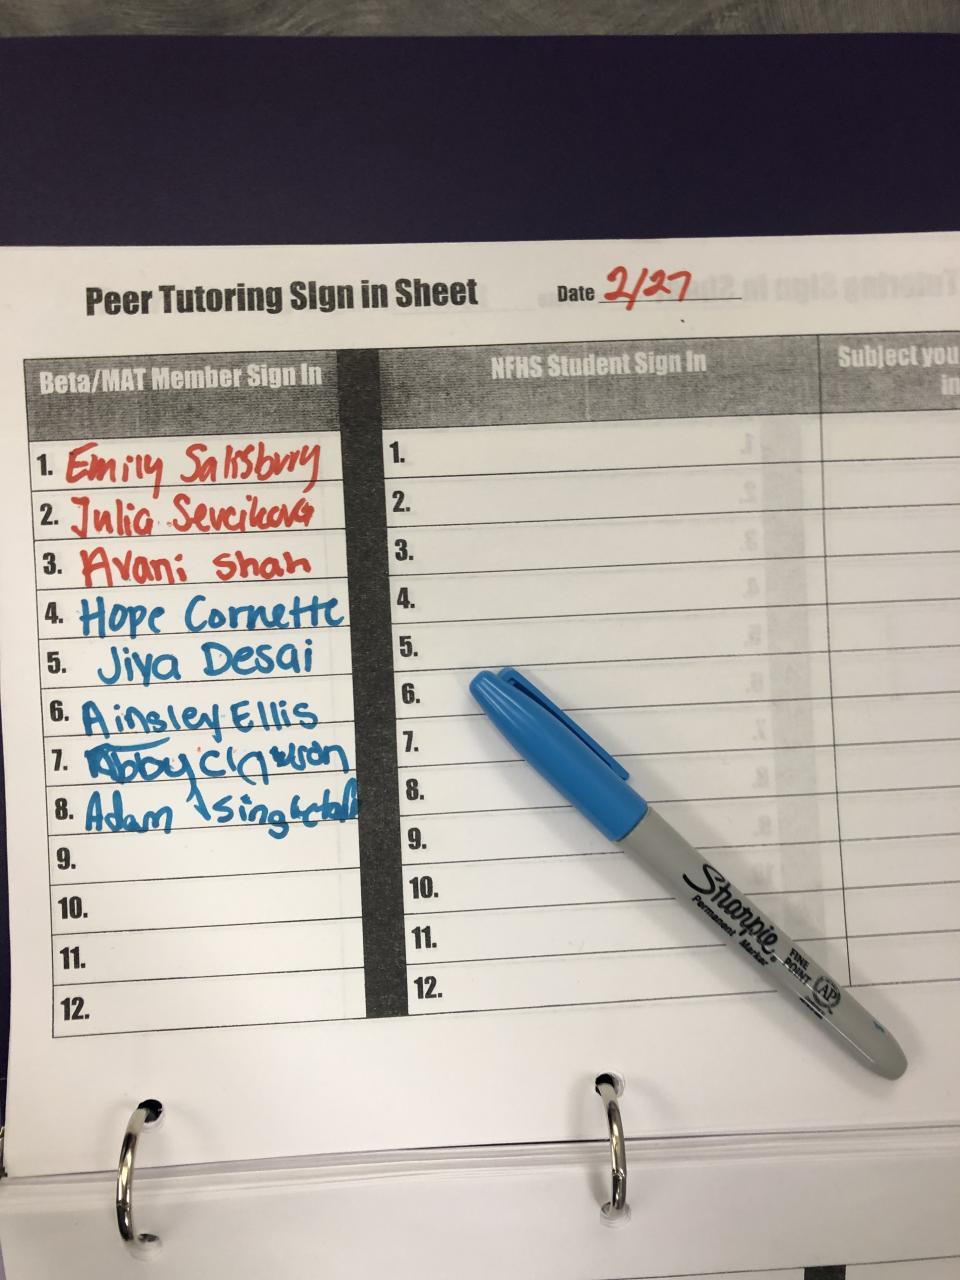 Peer Tutoring Sign in Sheet Date 2/27
Beta/MAT Member Sign In NFHS Student Sign In Subject you
in
1. Emily Salisbury 1.
2. Julia Sevcikova 2.
3. Avani Shah 3.
4. Hope Cornette 4.
5. Jiya Desai 5.
6. Ainsley Ellis 6.
7. Abby 7.
8. Adam Singleton 8.
9. 9.
10. 10.
11. 11.
12. 12.
Sharpie
Permanent Marker
FINE
POINT
AP